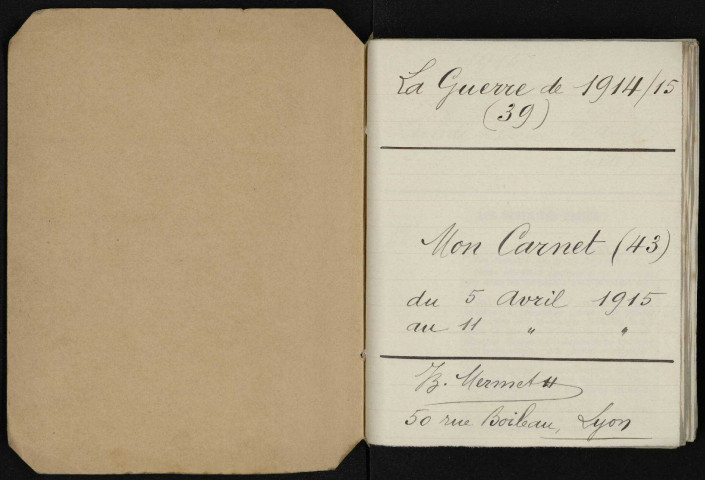 La Guerre de 1914/15
(39)
Mon Carnet (43)
du 5 Avril 1915
au 11 " "
B. Mermet
50 rue Boileau, Lyon